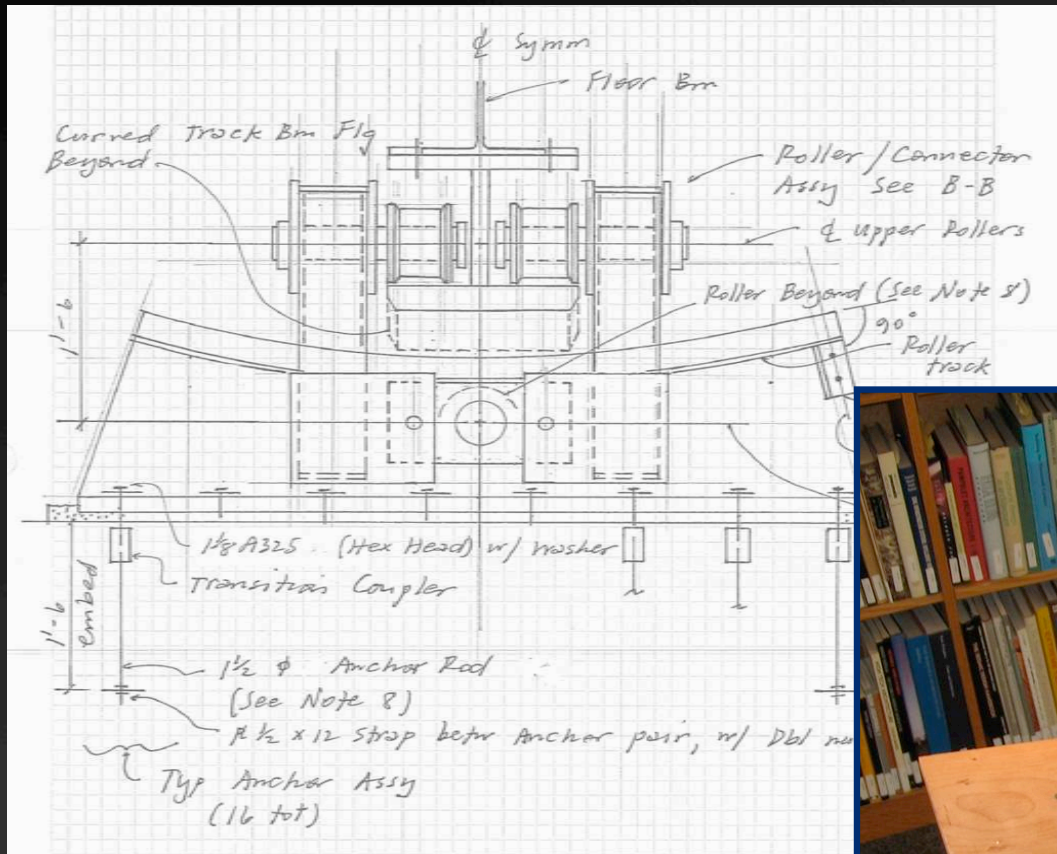 ℄ Symm
Floor Bm
Curved Track Bm Flg
Beyond
Roller / Connector
Assy See B-B
℄ Upper Rollers
Roller Beyond (See Note 8)
90°
Roller
track
1'-6
1 1/8 A325 (Hex Head) w/ washer
Transition Coupler
1'-6
embed
1 1/2 φ Anchor Rod
(See Note 8)
1/2 x 12 Strap betw Anchor pair, w/ Dbl
Typ Anchor Assy
(16 tot)